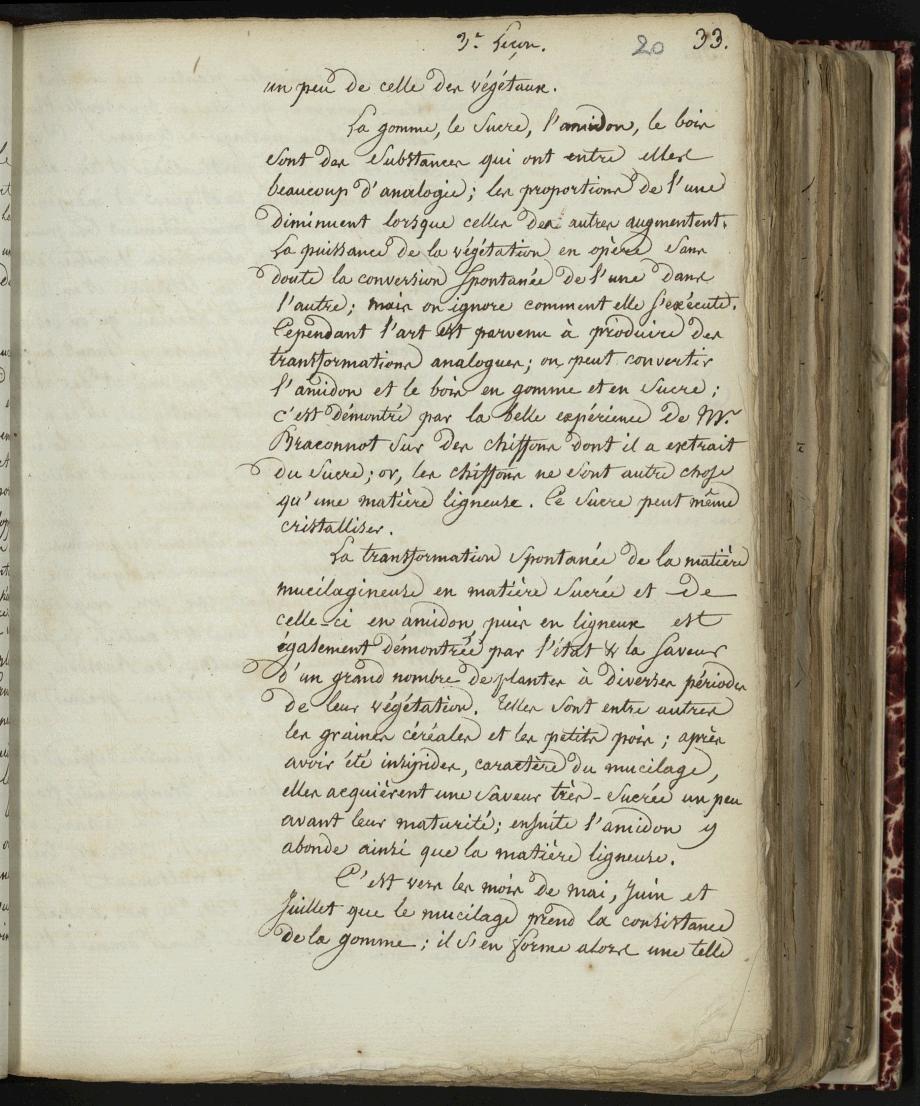 3.e Leçon. 20 33.
un peu de celle des végétaux.
La gomme, le sucre, l'amidon, le bois
sont des substances qui ont entre elles
beaucoup d'analogie; les proportions de l'une
diminuent lorsque celles des autres augmentent.
La puissance de la végétation en opère sans
doute la conversion spontanée de l'une dans
l'autre; mais on ignore comment elle s'exécute.
Cependant l'art est parvenu à produire des
transformations analogues; on peut convertir
l'amidon et le bois en gomme et en sucre;
c'est démontré par la belle expérience de Mr.
Braconnot sur des chiffons dont il a extrait
du sucre; or, les chiffons ne sont autre chose
qu'une matière ligneuse. Ce sucre peut même
cristalliser.
La transformation spontanée de la matière
mucilagineuse en matière sucrée et de
celle-ci en amidon puis en ligneux est
également démontrée par l'état & la saveur
d'un grand nombre de plantes à diverses périodes
de leur végétation. Telles sont entre autres
les graines céréales et les petits pois; après
avoir été insipides, caractère du mucilage,
elles acquièrent une saveur très-sucrée un peu
avant leur maturité; ensuite l'amidon y
abonde ainsi que la matière ligneuse.
C'est vers les mois de mai, Juin et
Juillet que le mucilage prend la consistance
de la gomme; il s'en forme alors une telle